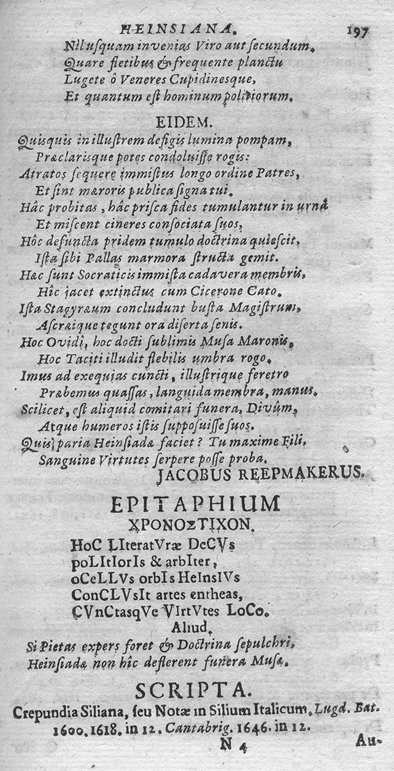 HEINSIANA. 197
Nusquam invenias Viro aut secundum.
Quare fletibus & frequente planctu
Lugete ô Veneres Cupidinesque,
Et quantum est hominum politiorum.
EIDEM.
Quisquis in illustrem defigis lumina pompam,
Præclarisque potes condoluisse rogis:
Atratos sequere immistus longo ordine Patres,
Et sint mæroris publica signa tui.
Hâc probitas, hâc prisca fides tumulantur in urnâ
Et miscent cineres consociata suos,
Hôc defuncta pridem tumulo doctrina quiescit,
Ista sibi Pallas marmora structa gemit.
Hæc sunt Socraticis immista cadavera membris,
Hîc jacet extinctus cum Cicerone Cato.
Ista Stagyræum concludunt busta Magistrum,
Ascraique tegunt ora diserta senis.
Hoc Ovidî, hoc docti sublimis Musa Maronis,
Hoc Taciti illudit flebilis umbra rogo.
Imus ad exequias cuncti, illustrique feretro
Præbemus quassas, languida membra, manus.
Scilicet, est aliquid comitari funera, Divûm,
Atque humeros istis supposuisse suos.
Quis paria Heinsiadæ faciet? Tu maxime Fili,
Sanguine Virtutes serpere posse proba.
JACOBUS REEPMAKERUS.
EPITAPHIUM
ΧΡΟΝΟΣΤΙΧΟΝ.
HoC LIteratVræ DeCVs
poLItIorIs & arbIter,
oCeLLVs orbIs HeInsIVs
ConCLVsIt artes entheas,
CVnCtasqVe VIrtVtes LoCo.
Aliud.
Si Pietas expers foret & Doctrina sepulchri,
Heinsiadæ non hîc deflerent funera Musæ.
SCRIPTA.
Crepundia Siliana, seu Notæ in Silium Italicum, Lugd. Bat.
1600. 1618. in 12. Cantabrig. 1646. in 12.
N 4 Au-